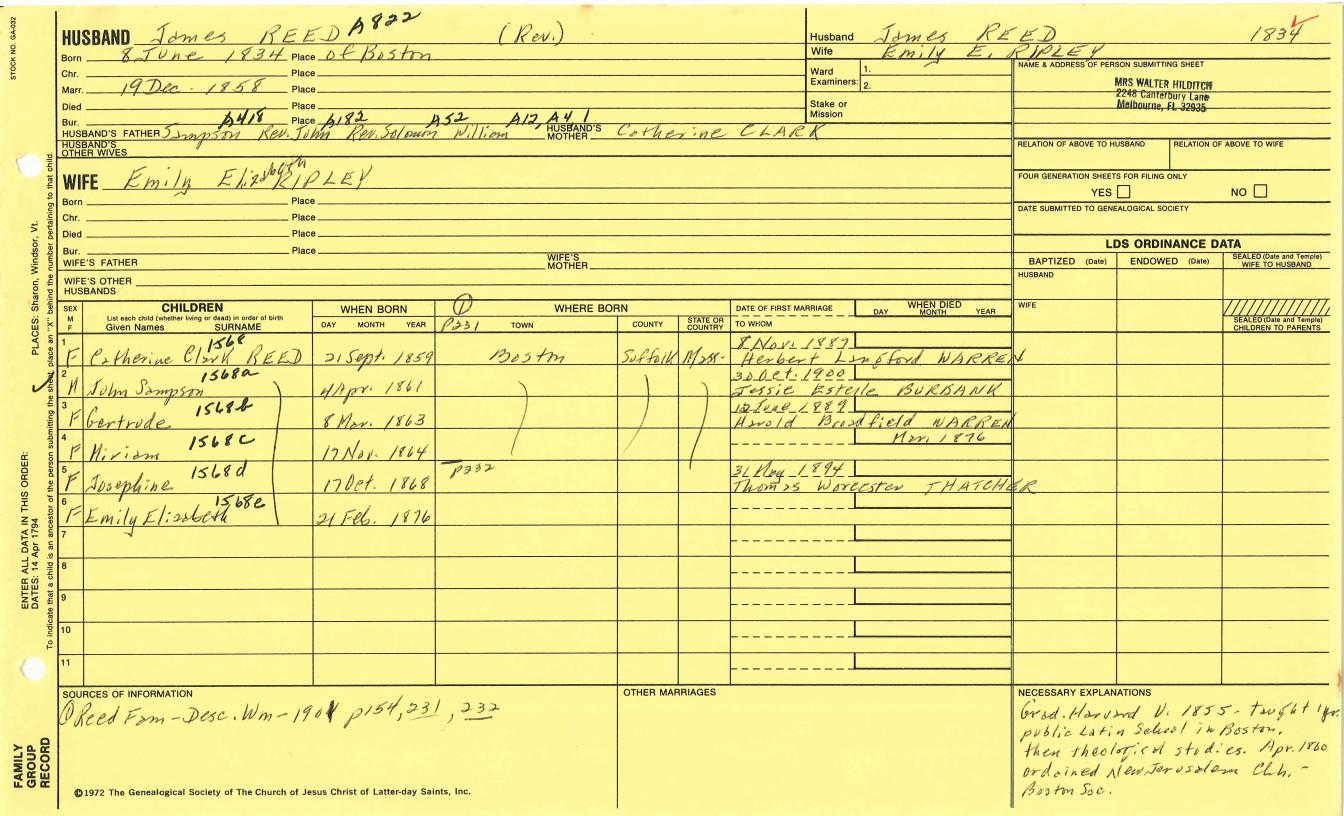 STOCK NO. GA-032
HUSBAND James REED A822 (Rev.)
Born 8 June 1834 Place of Boston
Chr. Place
Marr. 19 Dec. 1858 Place
Died Place
Bur. Place
A418 A182 A52 A12, A4 1
HUSBAND'S FATHER Sampson Rev. John Rev. Solomon William HUSBAND'S MOTHER Catherine CLARK
HUSBAND'S OTHER WIVES
Husband James REED 1834
Wife Emily E. RIPLEY
Ward Examiners: 1.
2.
Stake or Mission
NAME & ADDRESS OF PERSON SUBMITTING SHEET
MRS WALTER HILDITCH
2248 Canterbury Lane
Melbourne, FL 32935
RELATION OF ABOVE TO HUSBAND RELATION OF ABOVE TO WIFE
FOUR GENERATION SHEETS FOR FILING ONLY
YES NO
DATE SUBMITTED TO GENEALOGICAL SOCIETY
WIFE Emily Elizabeth RIPLEY
Born Place
Chr. Place
Died Place
Bur. Place
WIFE'S FATHER WIFE'S MOTHER
WIFE'S OTHER HUSBANDS
LDS ORDINANCE DATA
BAPTIZED (Date) ENDOWED (Date) SEALED (Date and Temple) WIFE TO HUSBAND
HUSBAND
WIFE
SEALED (Date and Temple) CHILDREN TO PARENTS
SEX M F CHILDREN WHEN BORN 1 WHERE BORN DATE OF FIRST MARRIAGE WHEN DIED
List each child (whether living or dead) in order of birth
Given Names SURNAME DAY MONTH YEAR P231 TOWN COUNTY STATE OR COUNTRY TO WHOM DAY MONTH YEAR
1 1568 8 Nov. 1887
F Catherine Clark REED 21 Sept. 1859 Boston Suffolk Mass. Herbert Langford WARREN
2 1568a 30 Oct. 1900
M John Sampson 4 Apr. 1861 Jessie Estelle BURBANK
3 1568b 12 June 1889
F Gertrude 8 Mar. 1863 Harold Broadfield WARREN
4 1568c Mar. 1876
F Miriam 17 Nov. 1864
5 1568d P232 31 May 1894
F Josephine 17 Oct. 1868 Thomas Worcester THATCHER
6 1568e
F Emily Elizabeth 21 Feb. 1876
7
8
9
10
11
SOURCES OF INFORMATION
1 Reed Fam-Desc. Wm-1901 p154, 231, 232
OTHER MARRIAGES
NECESSARY EXPLANATIONS
Grad. Harvard U. 1855 - taught 1 yr.
public Latin School in Boston,
then theological studies. Apr. 1860
ordained New Jerusalem Chh. -
Boston Soc.
©1972 The Genealogical Society of The Church of Jesus Christ of Latter-day Saints, Inc.
FAMILY
GROUP
RECORD
ENTER ALL DATA IN THIS ORDER:
DATES: 14 Apr 1794
PLACES: Sharon, Windsor, Vt.
To indicate that a child is an ancestor of the person submitting the sheet, place an "X" behind the number pertaining to that child.